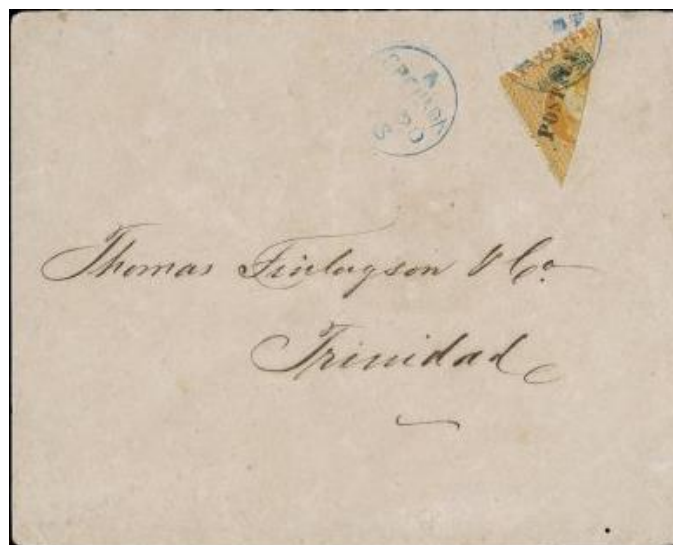 A
GRENADA
POSTAGE
Thomas Finlayson & Co.
Trinidad